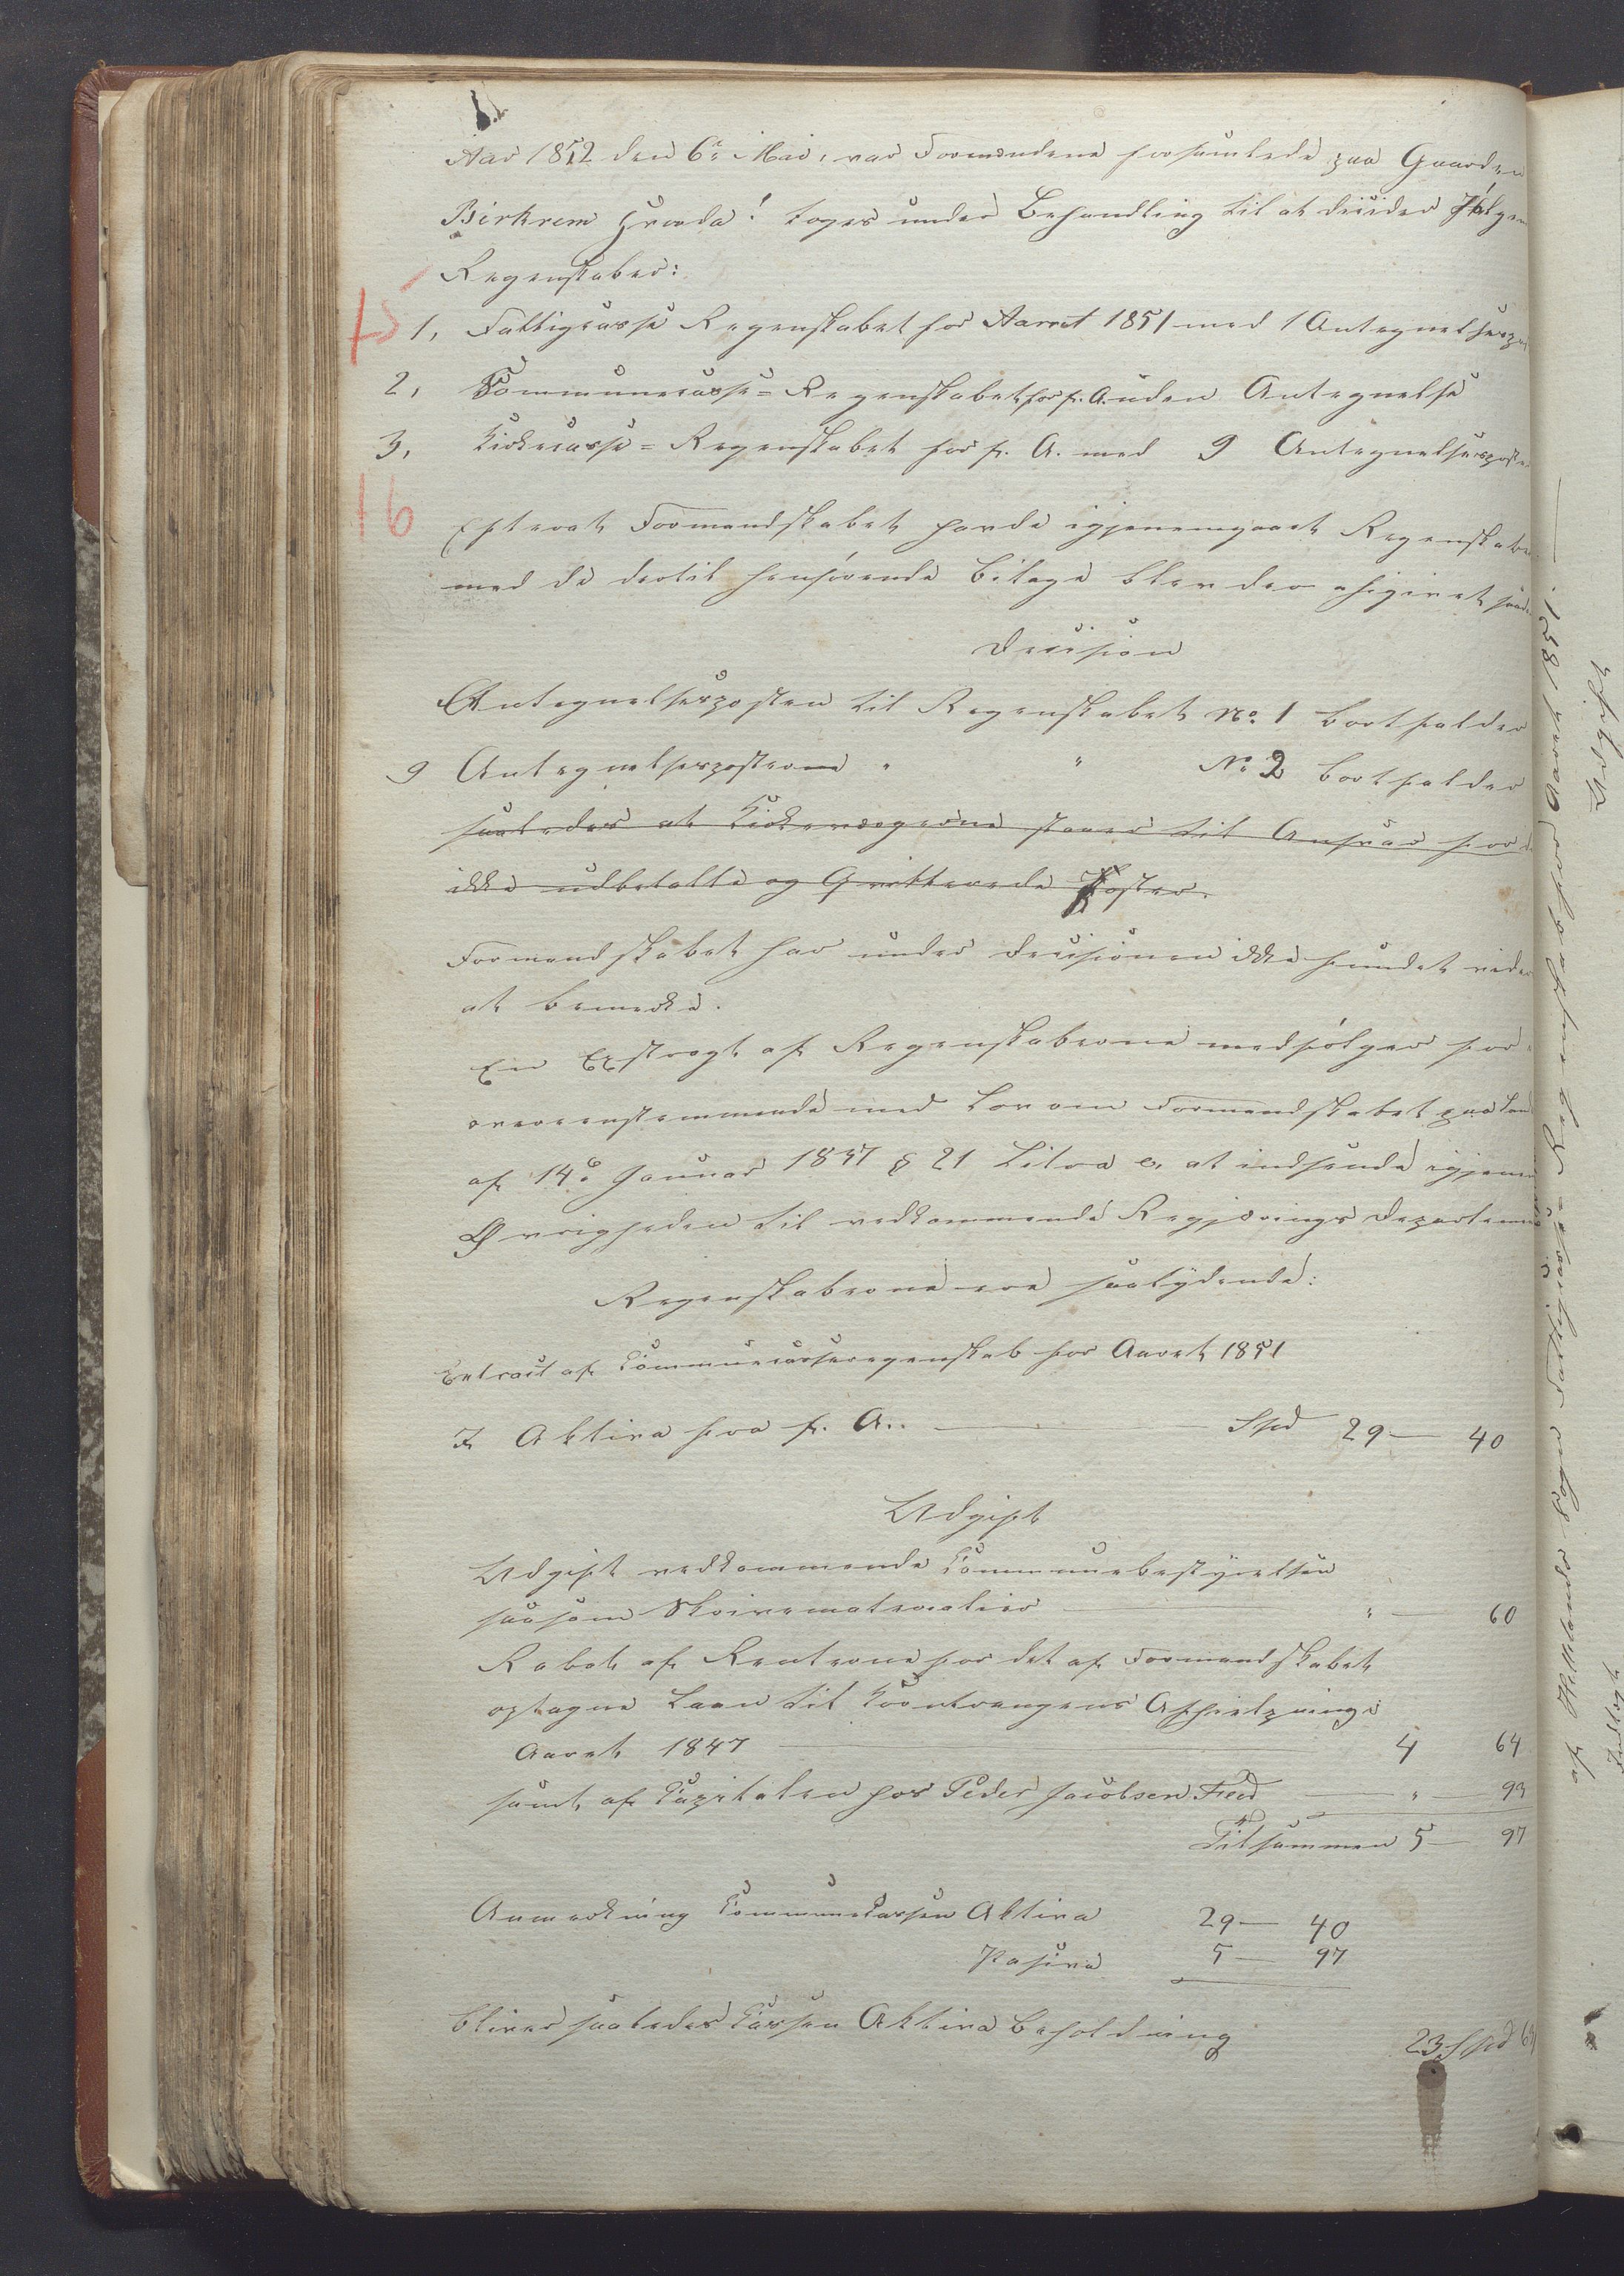 Aar 1852 den 6te Mai, var Formændene forsamlede paa Gaarden
Birkrem hvorda! toges under Behandling til at decider følgen
Regenskaber:
15
1, Fattigcasse Regenskabet for Aarret 1851 med 1 Antegnelsespo
2, Kommunecasse=Regenskabet for f. A. uden Antegnelse
3, Kirkecasse=Regenskabet for f. A. med 9 Antegnelsesposte
16
Efterat Formandskabet havde igjenemgaaet Regenskabe
med de dertil henhörende bilage blev der afsigivet saad
Decision
Antegnelsesposten til Regenskabet No. 1 bortfalder
9 Antegnelsesposterne " " No 2 bortfalder
saaledes at Kirkeværgerne staaer til Ansvar for d
ikke udbetalte og Qvitterede Poster.
Formandskabet har under Decisionen ikke fundet vider
at bemerke.
En Exstragt af Regenskaberne medfölger for
overenstemmende med Lov om Formandskabet paa Lan
af 14de Januar 1837 § 21 Litra e, at indsende igjenem
Øvrigheden til vedkommende Regjerings Departeme
Regenskaberne ere saalydende:
Extract af Communecasseregenskab for Aaret 1851
I Aktiva fra f. A. Spd 29 — 40
Udgift
Udgift vedkommende Communebestyrelsen
saasom Skrivematrealier " — 60
Rabat af Renterne for det af Formandskabet
optagne Laan til Korntrangens Afhielpning i
Aaret 1847 4 64
samt af Capitalen hos Peder Jacobsen Fied " — 93
Tilsammen 5 — 97
Anmerkning Communekassen Aktiva 29 — 40
Pasiva 5 — 97
bliver saaledes Cassen Aktiva beholdning 23 Spd 63
af Hellelands Sogns Fattigcasse=Regenskab for Aaret 1851.
Indtægt
Udgift